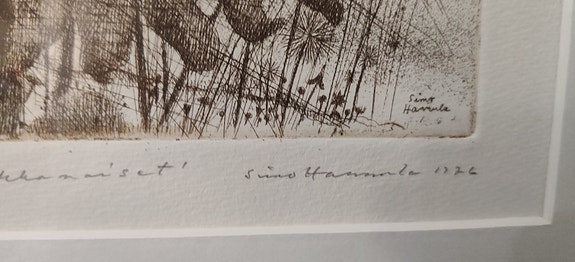 Simo
Hannula
kkanaiset' Simo Hannula 1976